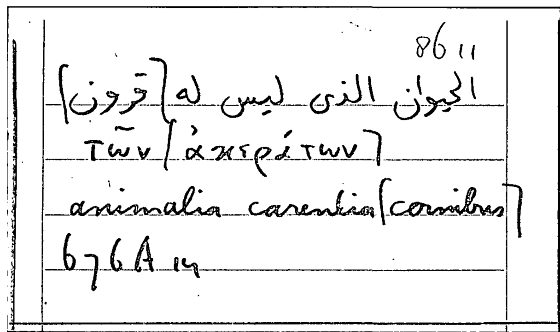 86 11
الحيوان الذى ليس له [قرون]
τῶν [ἀκεράτων]
animalia carentia [cornibus]
676A 14